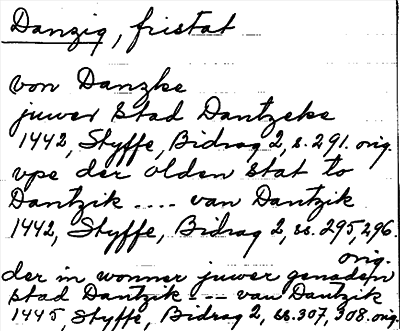 Danzig, fristat
von Danzke
juwer stad Dantzeke
1442, Styffe, Bidrag 2, s. 291. orig.
vpe der olden stat to
Dantzik .... van Dantzik
1442, Styffe, Bidrag 2, ss. 295, 296.
orig.
der in wonner juwer genadem
stad Dantzik --- van Dantzik
1445, Styffe, Bidrag 2, ss. 307, 308. orig.